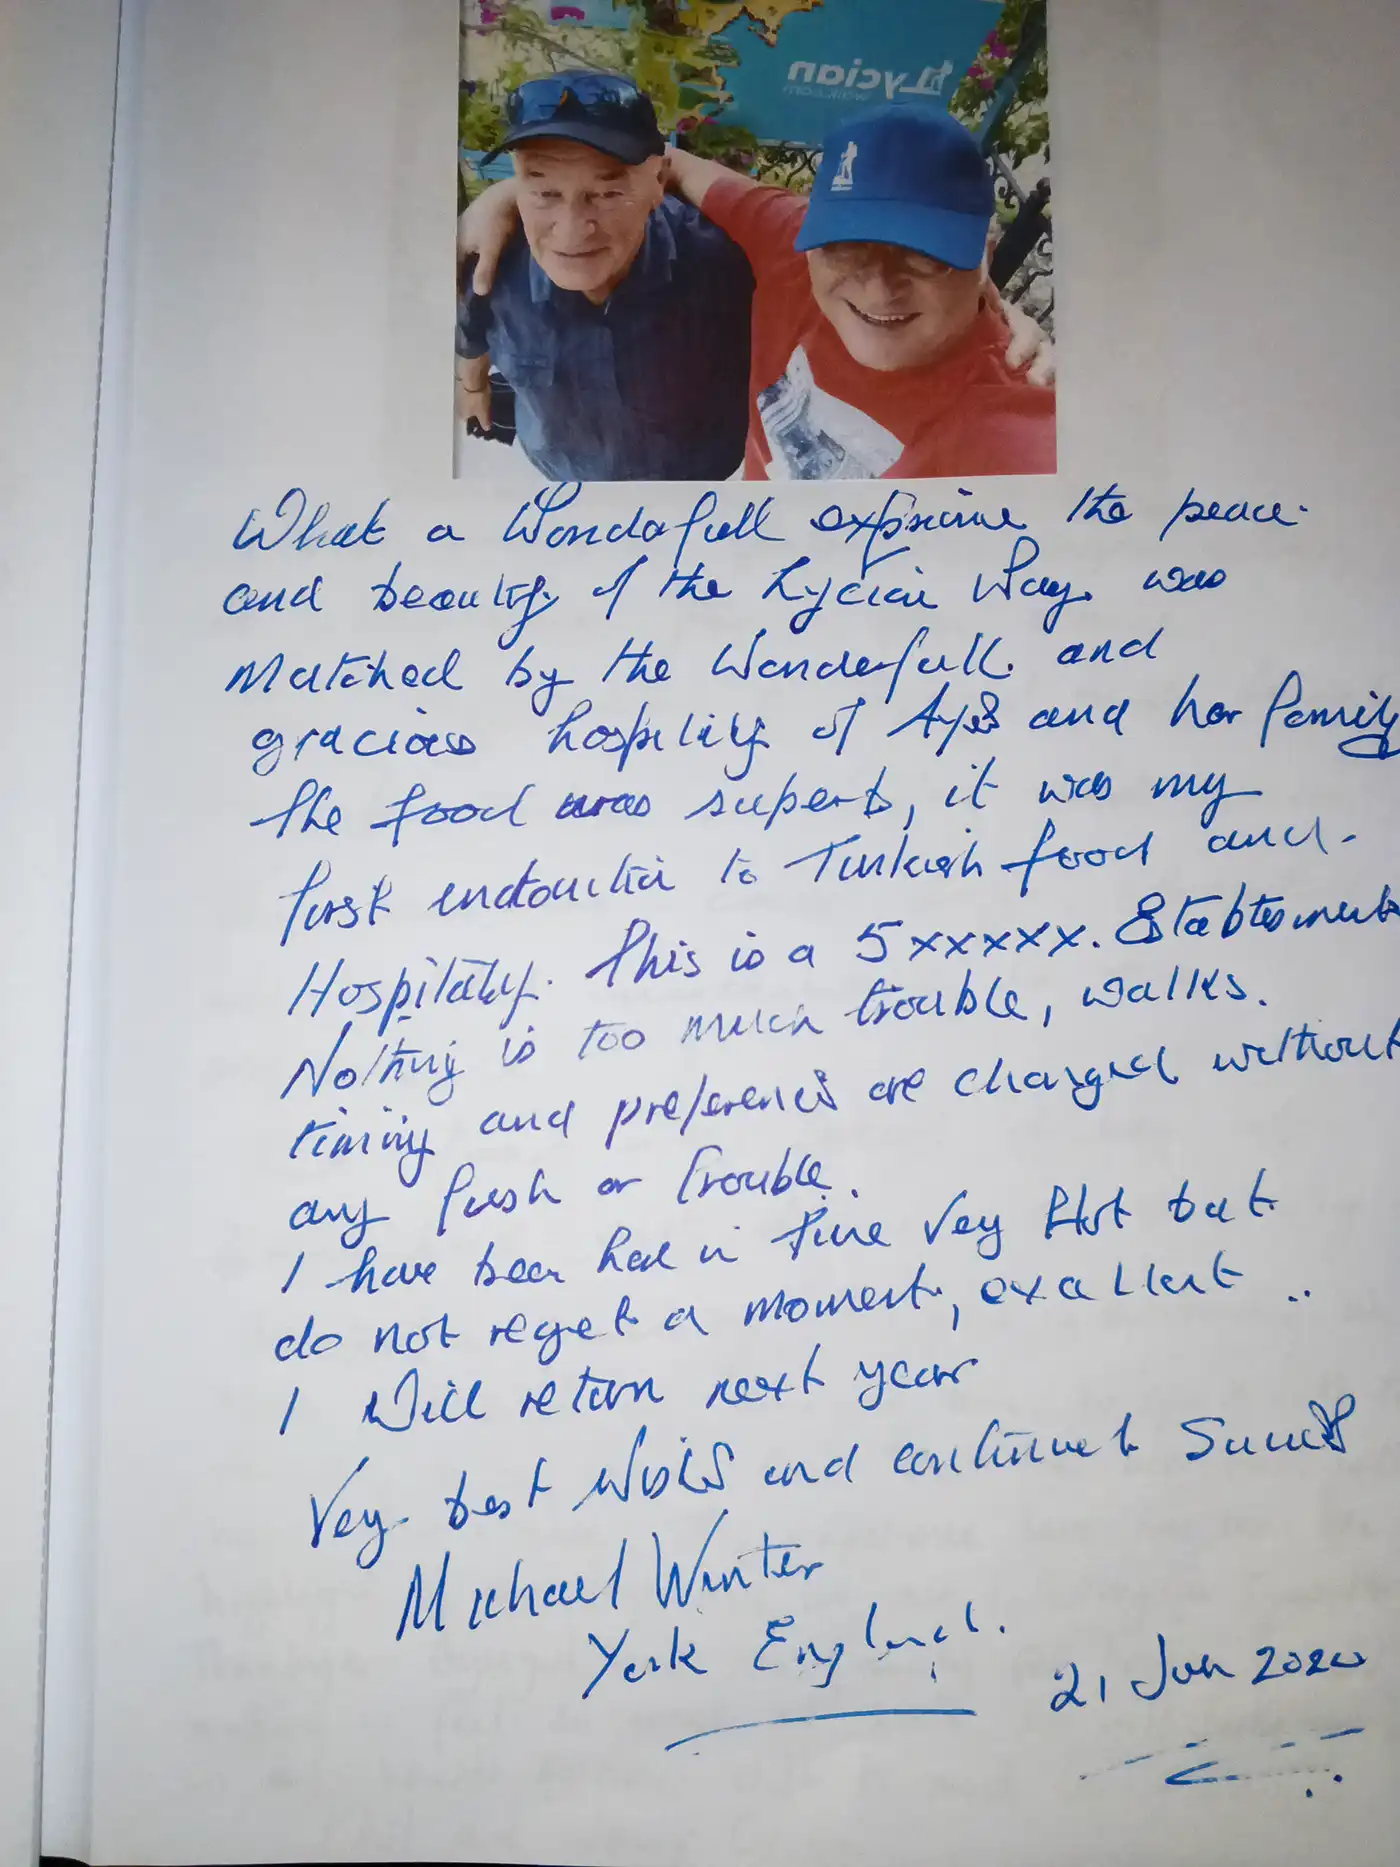 Lycian
What a Wonderfull experience the peace
and beauty of the Lycian Way was
Matched by the Wonderfull and
gracious hospility of Ayse and her family
the food was superb, it was my
first introduction to Turkish food and
Hospitality. This is a 5xxxxx. Establishment
Nothing is too much trouble, walks.
timing and preferences are changed without
any fush or trouble.
I have been here in June Very Hot but
do not regret a moment, excellent ..
I Will return next year
Very best Wishes and continued Success
Michael Winter
York England.
21 Jun